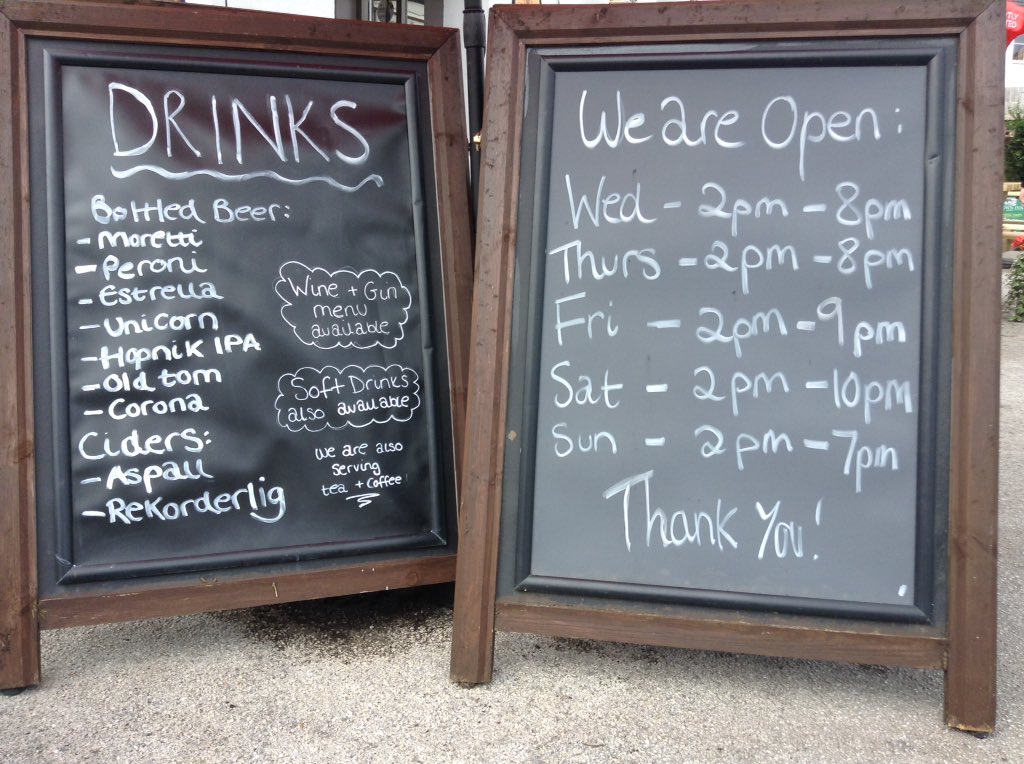 DRINKS
Bottled Beer:
- Moretti
- Peroni
- Estrella
- Unicorn
- Hopnik IPA
- Old tom
- Corona
Ciders:
- Aspall
- Rekorderlig
Wine + Gin
menu
available
Soft Drinks
also available
we are also
serving
tea + coffee!
We are Open:
Wed - 2pm - 8pm
Thurs - 2pm - 8pm
Fri - 2pm - 9pm
Sat - 2pm - 10pm
Sun - 2pm - 7pm
Thank You!